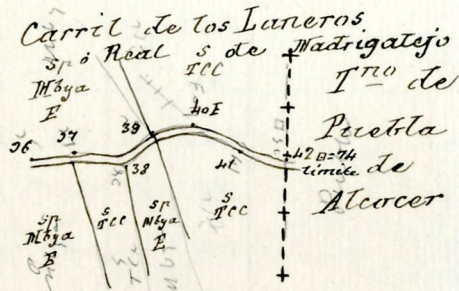 Carril de los Laneros
ó Real de Madrigalejo
Sp
Mbya
E
S
TCC
Tno de
Puebla
de
Alcocer
36
37
39
40E
38
41
42 θ=74
limite
Sp
Mbya
E
S
TCC
S
TCC
Sp
Mbya
E
S
TCC